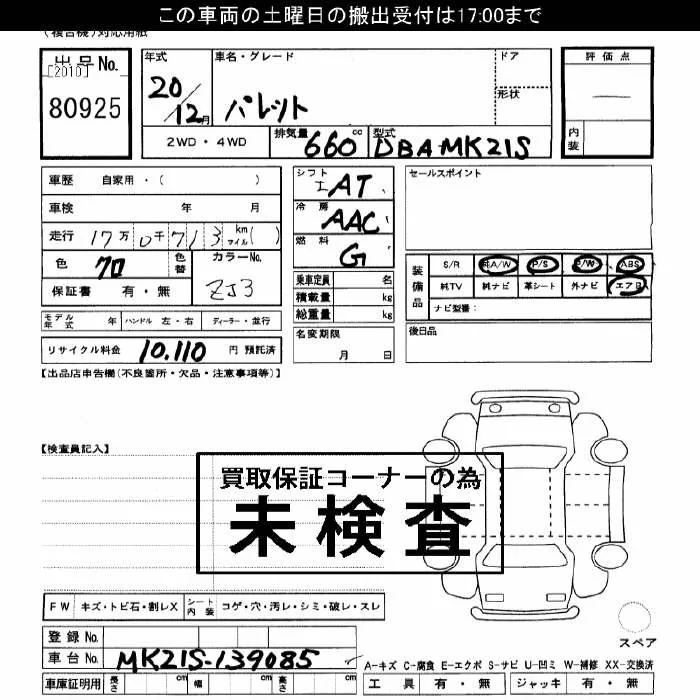 この車両の土曜日の搬出受付は17:00まで
(複合機)対応用紙
出品No. [2010] 80925
年式 20/12月 車名・グレード パレット ドア 形状
2WD・4WD 排気量 660cc 型式 DBA-MK21S
評価点 —
内装
車歴 自家用・( )
車検 年 月
走行 17万0千713 km マイル( )
色 クロ 色替 カラーNo. ZJ3
保証書 有・無
シフト エ AT
冷房 AAC
燃料 G
乗車定員 名
積載量 kg
総重量 kg
セールスポイント
装備品 S/R 純A/W P/S P/W ABS
純TV 純ナビ 革シート 外ナビ エアB
ナビ型番:
モデル年式 年 ハンドル 左・右 ディーラー・並行
リサイクル料金 10,110 円 預託済
名変期限 月 日
後日品
【出品店申告欄(不良箇所・欠品・注意事項等)】
【検査員記入】
買取保証コーナーの為
未検査
FW キズ・トビ石・割レX シート内装 コゲ・穴・汚レ・シミ・破レ・スレ
登録No.
車台No. MK21S-139085
スペア
A-キズ C-腐食 E-エクボ S-サビ U-凹ミ W-補修 XX-交換済
車庫証明用 長さ cm 幅 cm 高さ cm
工具 有・無 ジャッキ 有・無